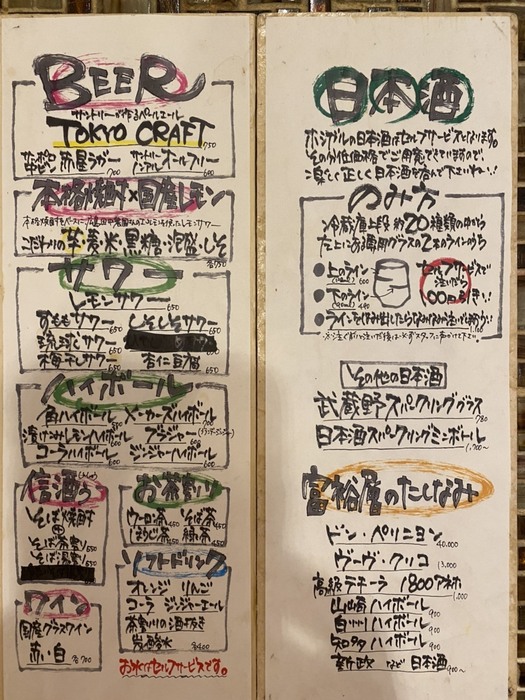 BEER
サントリーが作るペールエール
TOKYO CRAFT 750
サッポロ 赤星ラガー 700
サントリー ノンアル オールフリー 600
本格焼酎×国産レモン
こだわりの芋・麦・米・黒糖・泡盛・しそ
サワー
レモンサワー 650
すももサワー 650
しそしそサワー 650
琉球サワー 650
梅干しサワー 650
杏仁豆腐 650
ハイボール
角ハイボール
メーカーズハイボール 700
漬けこみレモンハイボール
ブラジャー
コーラハイボール 600
ジンジャーハイボール 600
信酒う
そば焼酎
そば茶割り 650
そば湯割り 650
お茶割り
ウーロン茶 450
そば茶 450
ほうじ茶 450
緑茶 450
ソフトドリンク
オレンジ りんご
コーラ ジンジャーエール
茶割りの酒抜き
炭酸水
各400
ワイン
国産グラスワイン
赤・白
各700
お水はセルフサービスです。
日本酒
ホシガルの日本酒はセルフサービスとなります。
その分低価格でご用意できていますので、
楽しく正しく日本酒を呑んで下さいね!!
のみ方
冷蔵庫上段 約20種類の中から
左上にある専用グラスの2本のラインのうち
●上のライン 600
●下のライン
セルフサービスで
注いだら
100円引き!!
●ラインをはみ出したら
その他の日本酒
武蔵野スパークリンググラス 780
日本酒スパークリングミニボトル 1,700〜
富裕層のたしなみ
ドン・ペリニヨン 40,000
ヴーヴ・クリコ 13,000
高級テキーラ 1800アネホ 1,000
山崎ハイボール 900
白州ハイボール 900
知多ハイボール 900
新政 など 日本酒 900〜